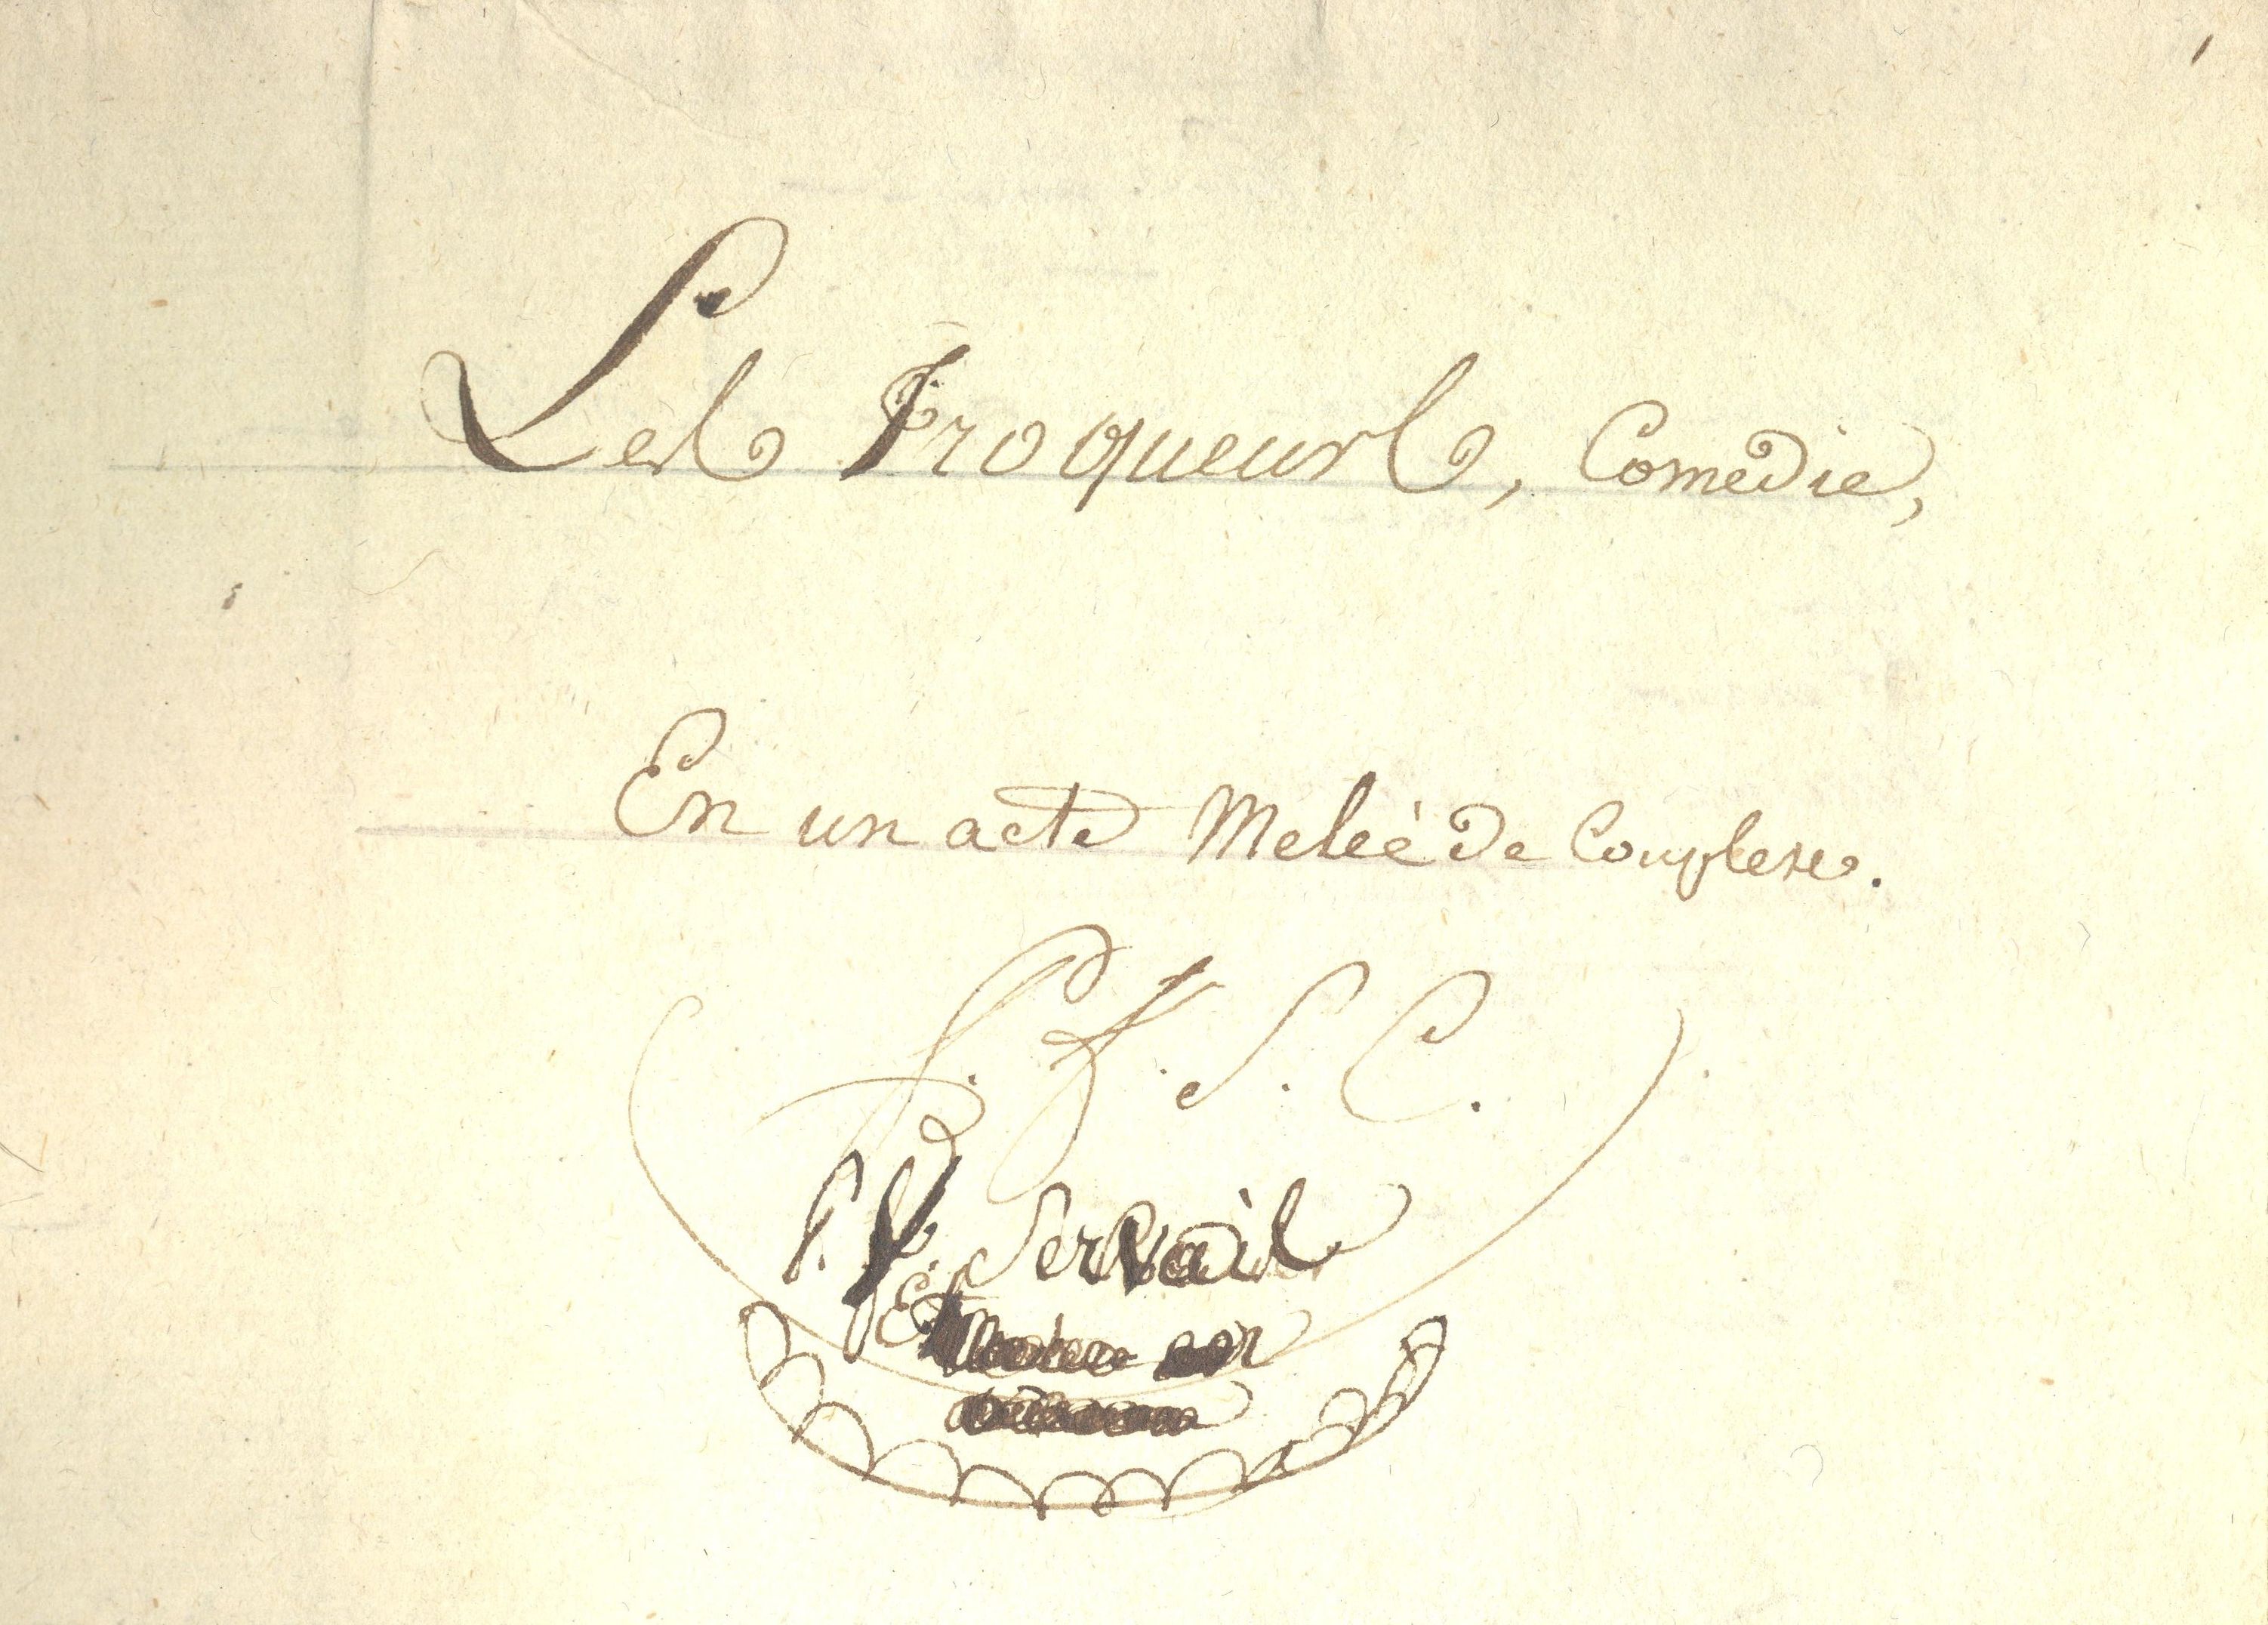 Les Troqueurs, Comedie,
En un acte Meleé de Couplets.
S. C.
Servail
Et